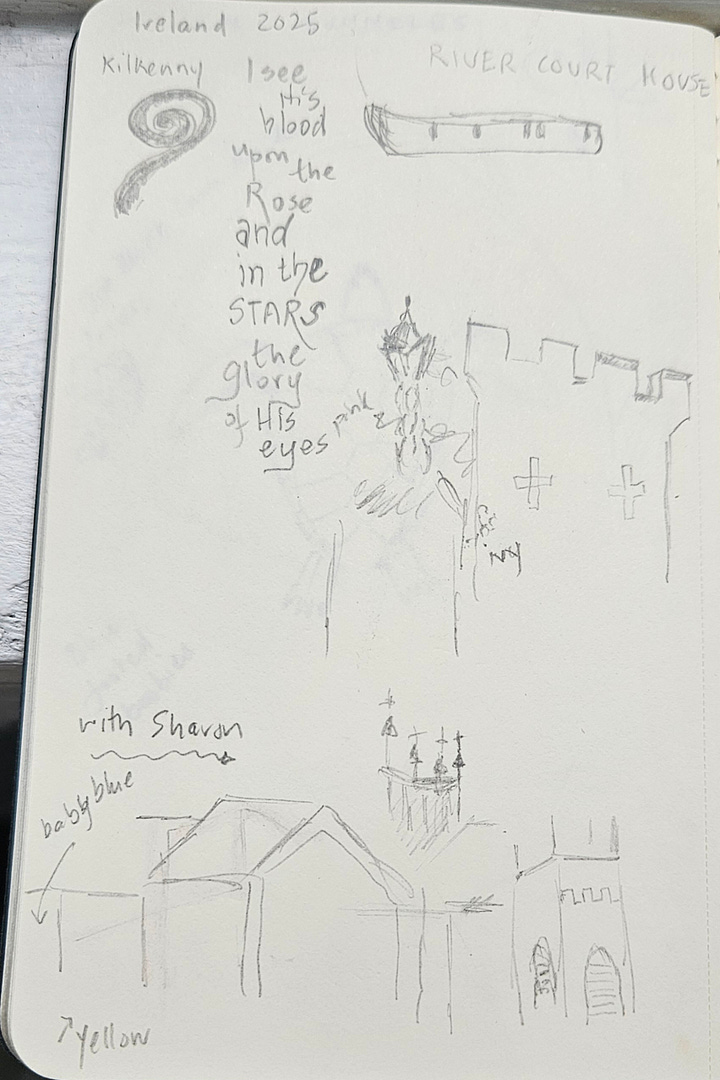 Ireland 2025
Kilkenny
I see
His
blood
upon
the
Rose
and
in the
STARS
the
glory
of His
eyes
RIVER COURT HOUSE
pink
with Sharon
baby blue
yellow